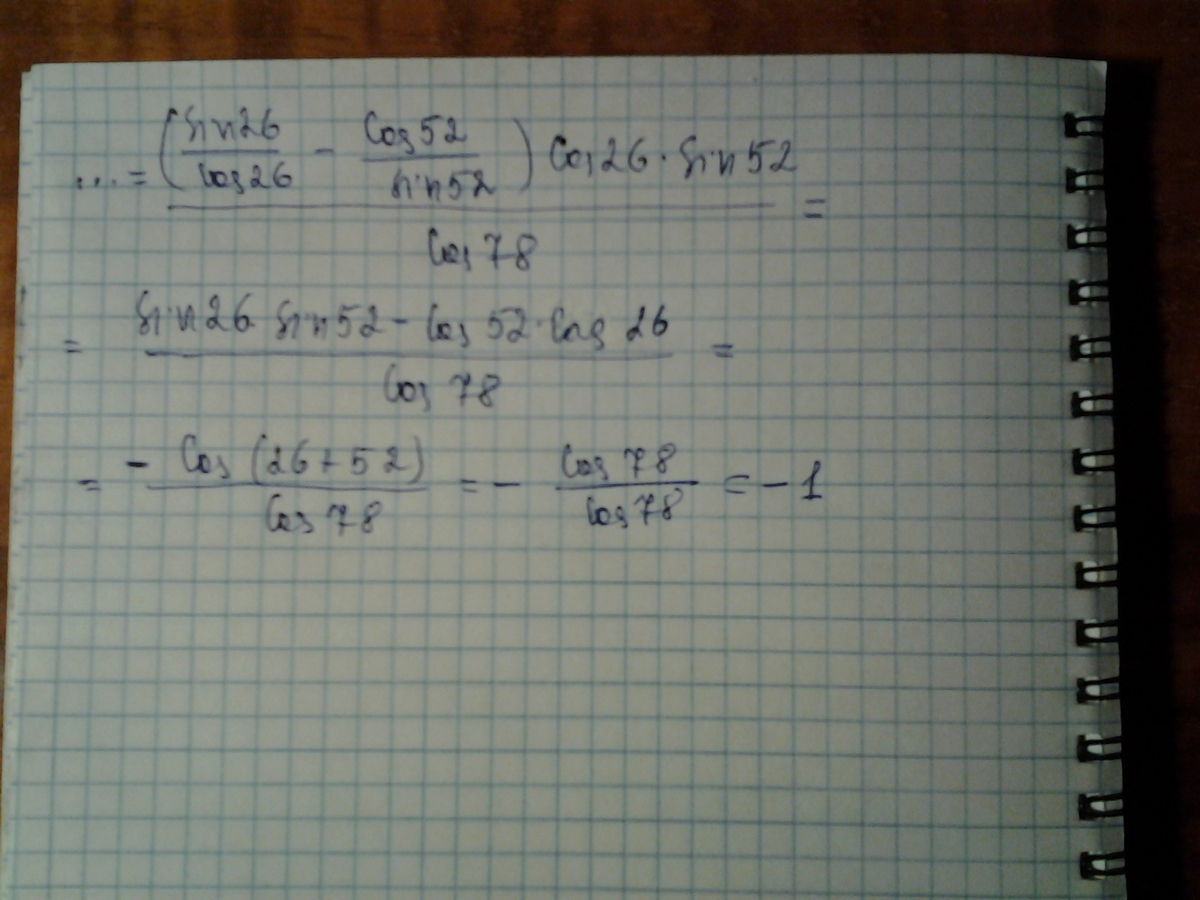 ...= (sin26/cos26 - cos52/sin52) cos26 · sin52 / cos78 =
= sin26 sin52 - cos52 · cos26 / cos78 =
= - cos(26+52) / cos78 = - cos78 / cos78 = -1